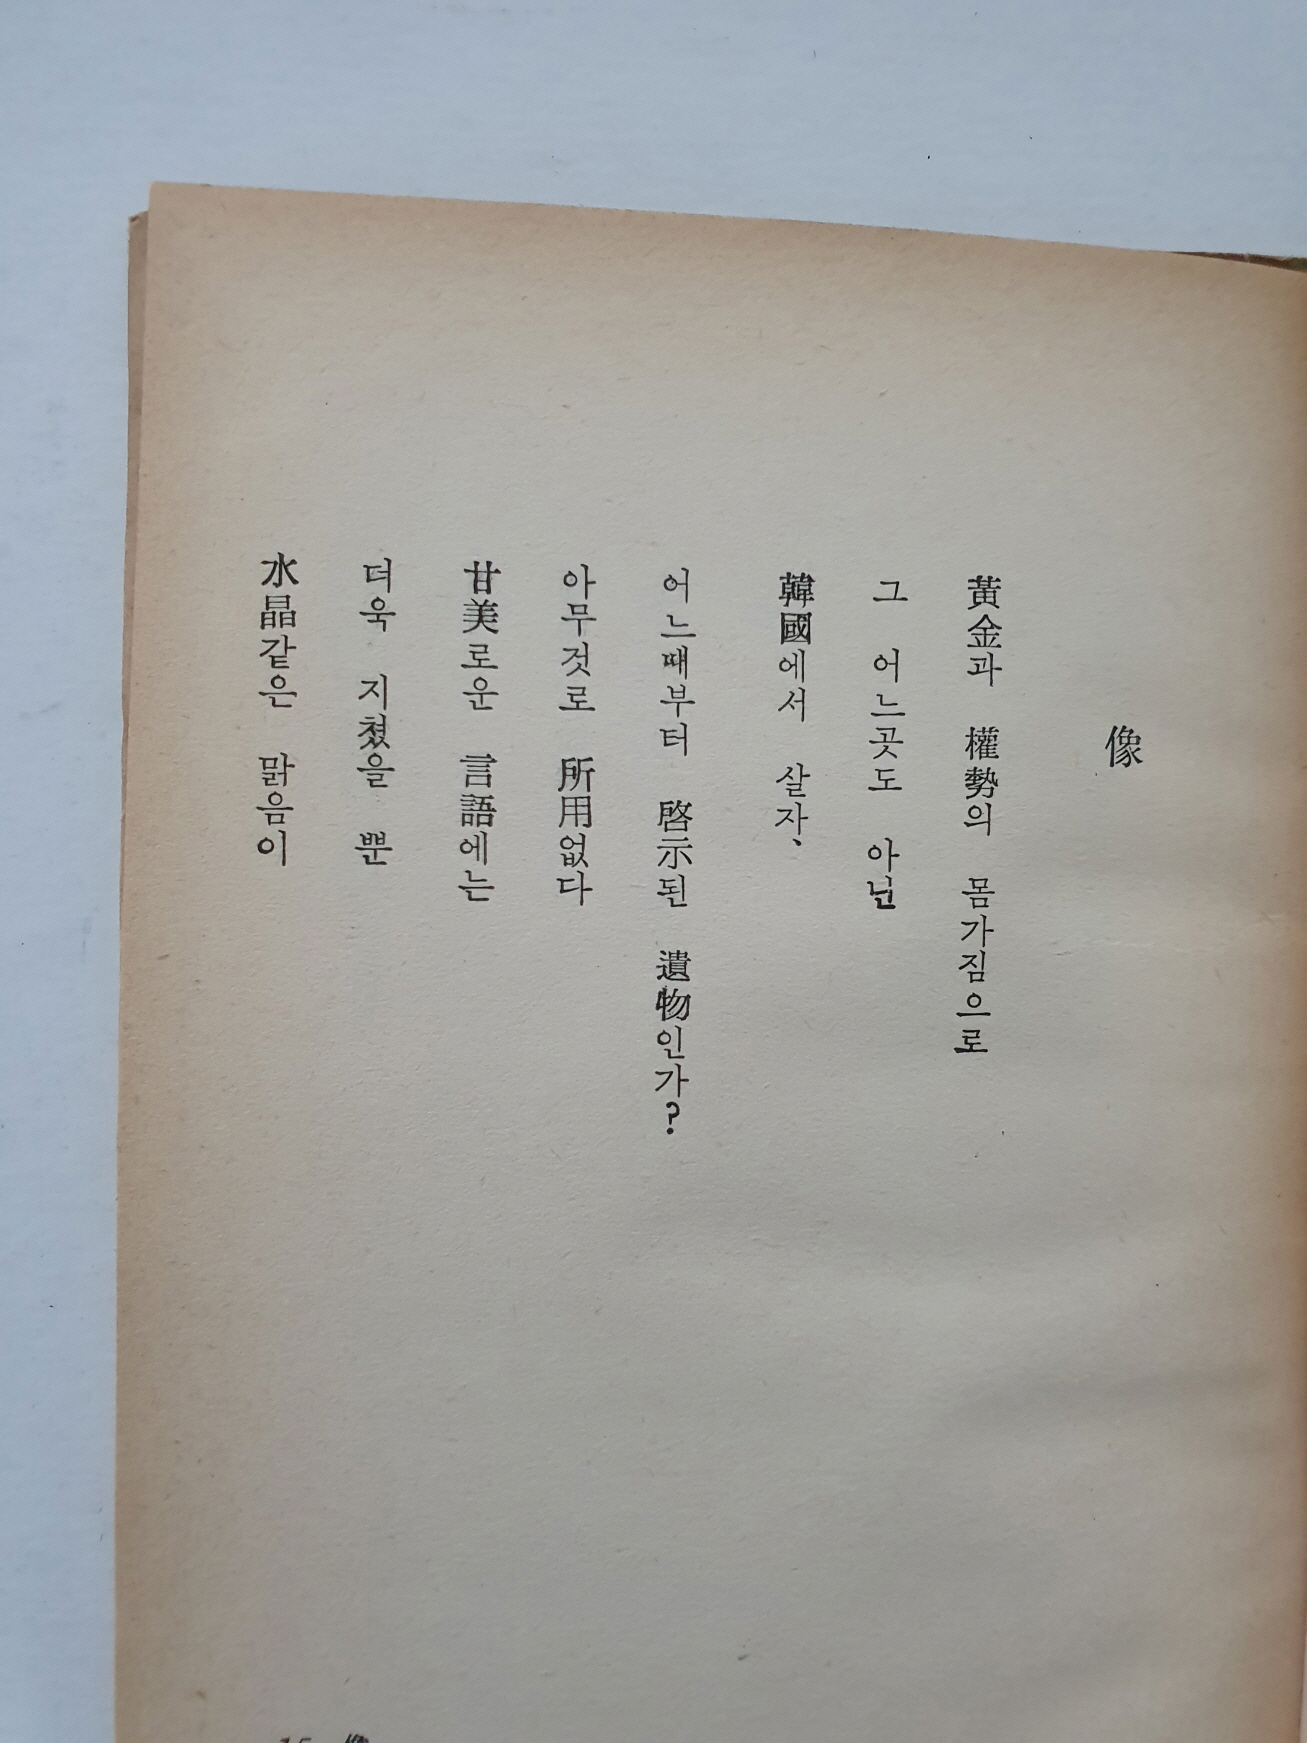 像
黃金과 權勢의 몸가짐으로
그 어느곳도 아닌
韓國에서 살자、
어느때부터 啓示된 遺物인가?
아무것로 所用없다
甘美로운 言語에는
더욱 지쳤을 뿐
水晶같은 맑음이